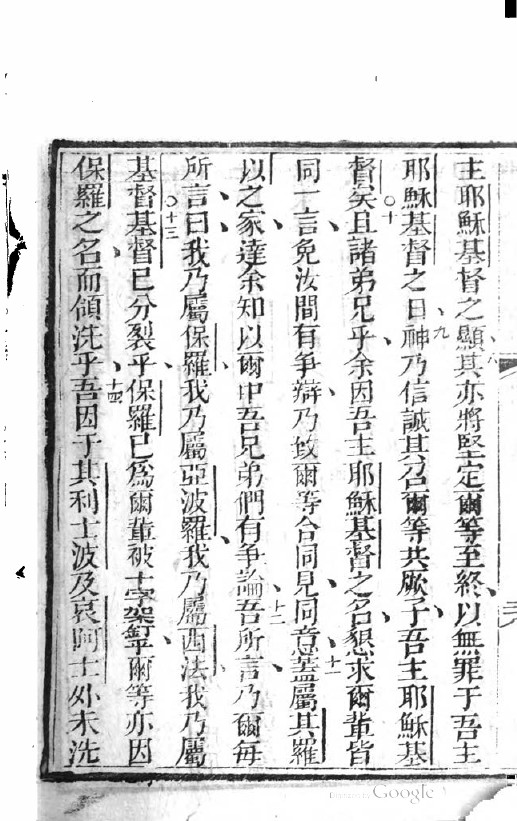 主耶穌基督之顯其亦將堅定爾等至終以無罪于吾主
耶穌基督之日九神乃信誠其召爾等共厥子吾主耶穌基
督矣十且諸弟兄乎余因吾主耶穌基督之名懇求爾輩皆
同一言免汝間有争辯乃致爾等合同見同意十一蓋屬其羅
以之家達余知以爾中吾兄弟們有争論十二吾所言乃爾每
所言曰我乃屬保羅我乃屬亞波羅我乃屬西法我乃屬
基督十三基督已分裂乎保羅已為爾輩被十字架釘乎爾等亦因
保羅之名而領洗乎十四吾因于其利士波及哀阿士外未洗
Google